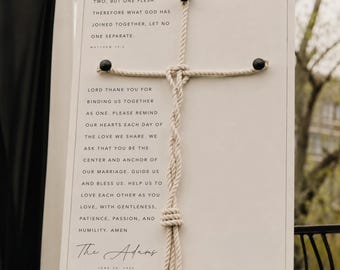 TWO, BUT ONE FLESH
THEREFORE WHAT GOD HAS
JOINED TOGETHER, LET NO
ONE SEPARATE.
MATTHEW 19:6
LORD THANK YOU FOR
BINDING US TOGETHER
AS ONE. PLEASE REMIND
OUR HEARTS EACH DAY OF
THE LOVE WE SHARE. WE
ASK THAT YOU BE THE
CENTER AND ANCHOR OF
OUR MARRIAGE. GUIDE US
AND BLESS US. HELP US TO
LOVE EACH OTHER AS YOU
LOVE, WITH GENTLENESS,
PATIENCE, PASSION, AND
HUMILITY. AMEN
The Adams